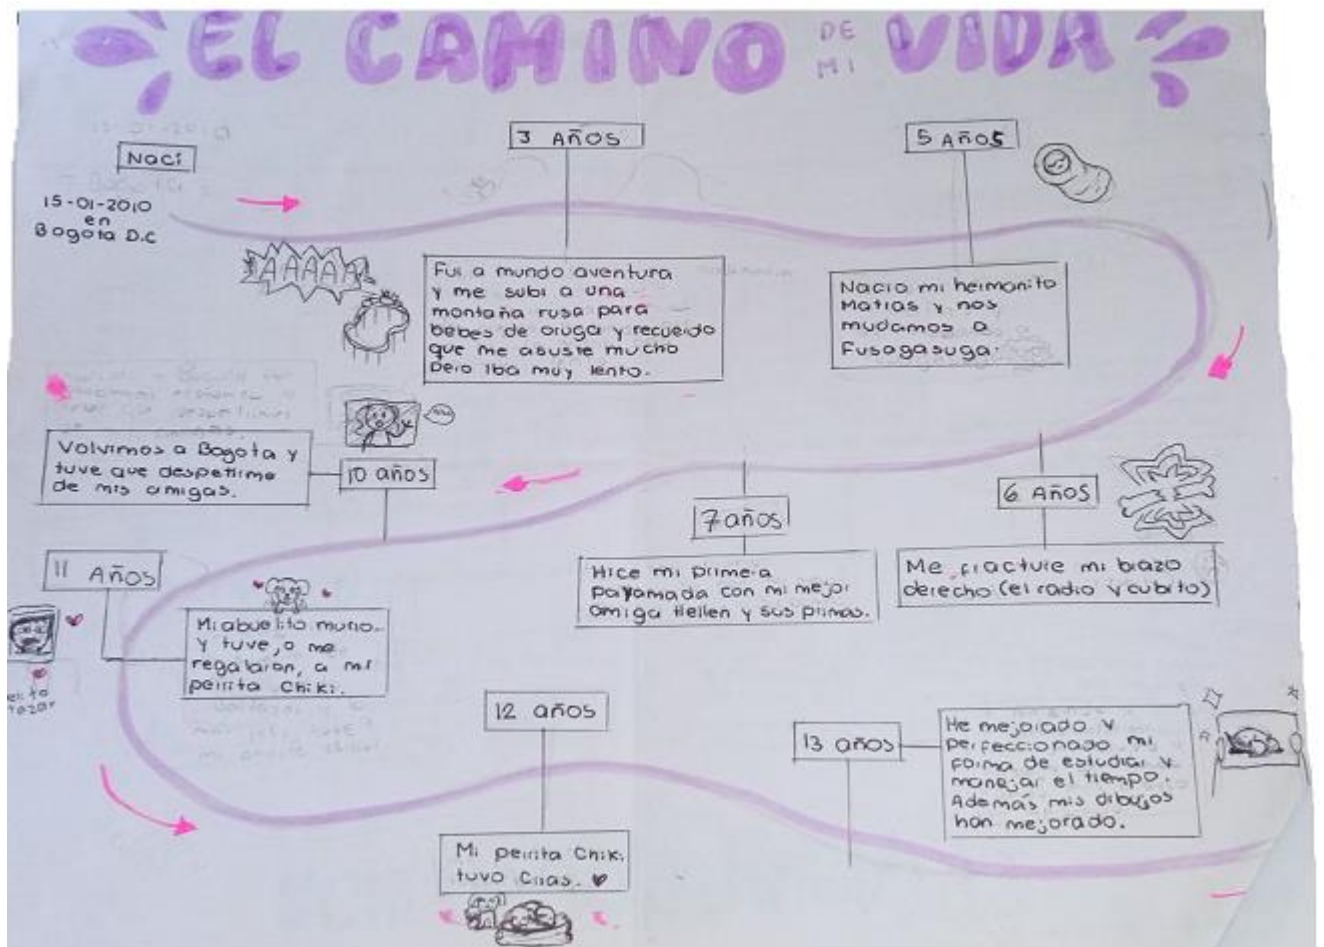 EL CAMINO DE MI VIDA
Nací
15-01-2010
en
Bogota D.C
3 AÑOS
AAAAA
Fui a mundo aventura
y me subi a una
montaña rusa para
bebes de oruga y recuerdo
que me asuste mucho
pero iba muy lento.
5 AÑOS
Nacio mi hermanito
Matias y nos
mudamos a
Fusagasuga.
6 AÑOS
Me fracture mi brazo
derecho (el radio y cubito)
7 años
Hice mi primera
payamada con mi mejor
amiga Hellen y sus primas.
10 años
Volvimos a Bogota y
tuve que despetirme
de mis amigas.
11 AÑOS
Mi abuelito murio
y tuve, o me
regalaron, a mi
perrita Chiki.
12 años
Mi perrita Chiki
tuvo Crias.
13 años
He mejorado y
perfeccionado mi
forma de estudiar y
manejar el tiempo.
Además mis dibujos
han mejorado.